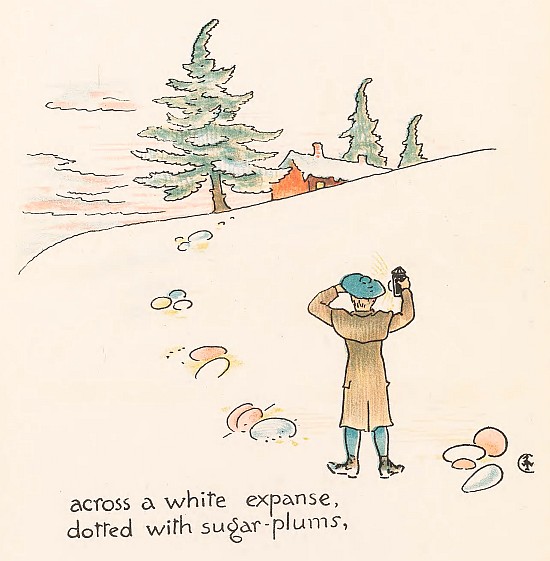 across a white expanse,
dotted with sugar-plums,